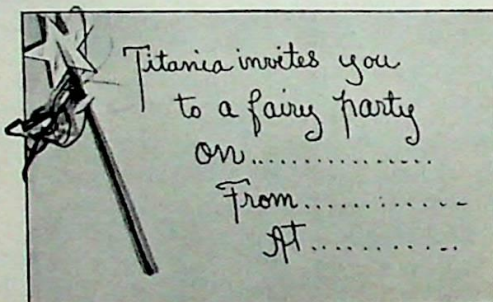 Titania invites you
to a fairy party
on...............
From.............
At...........